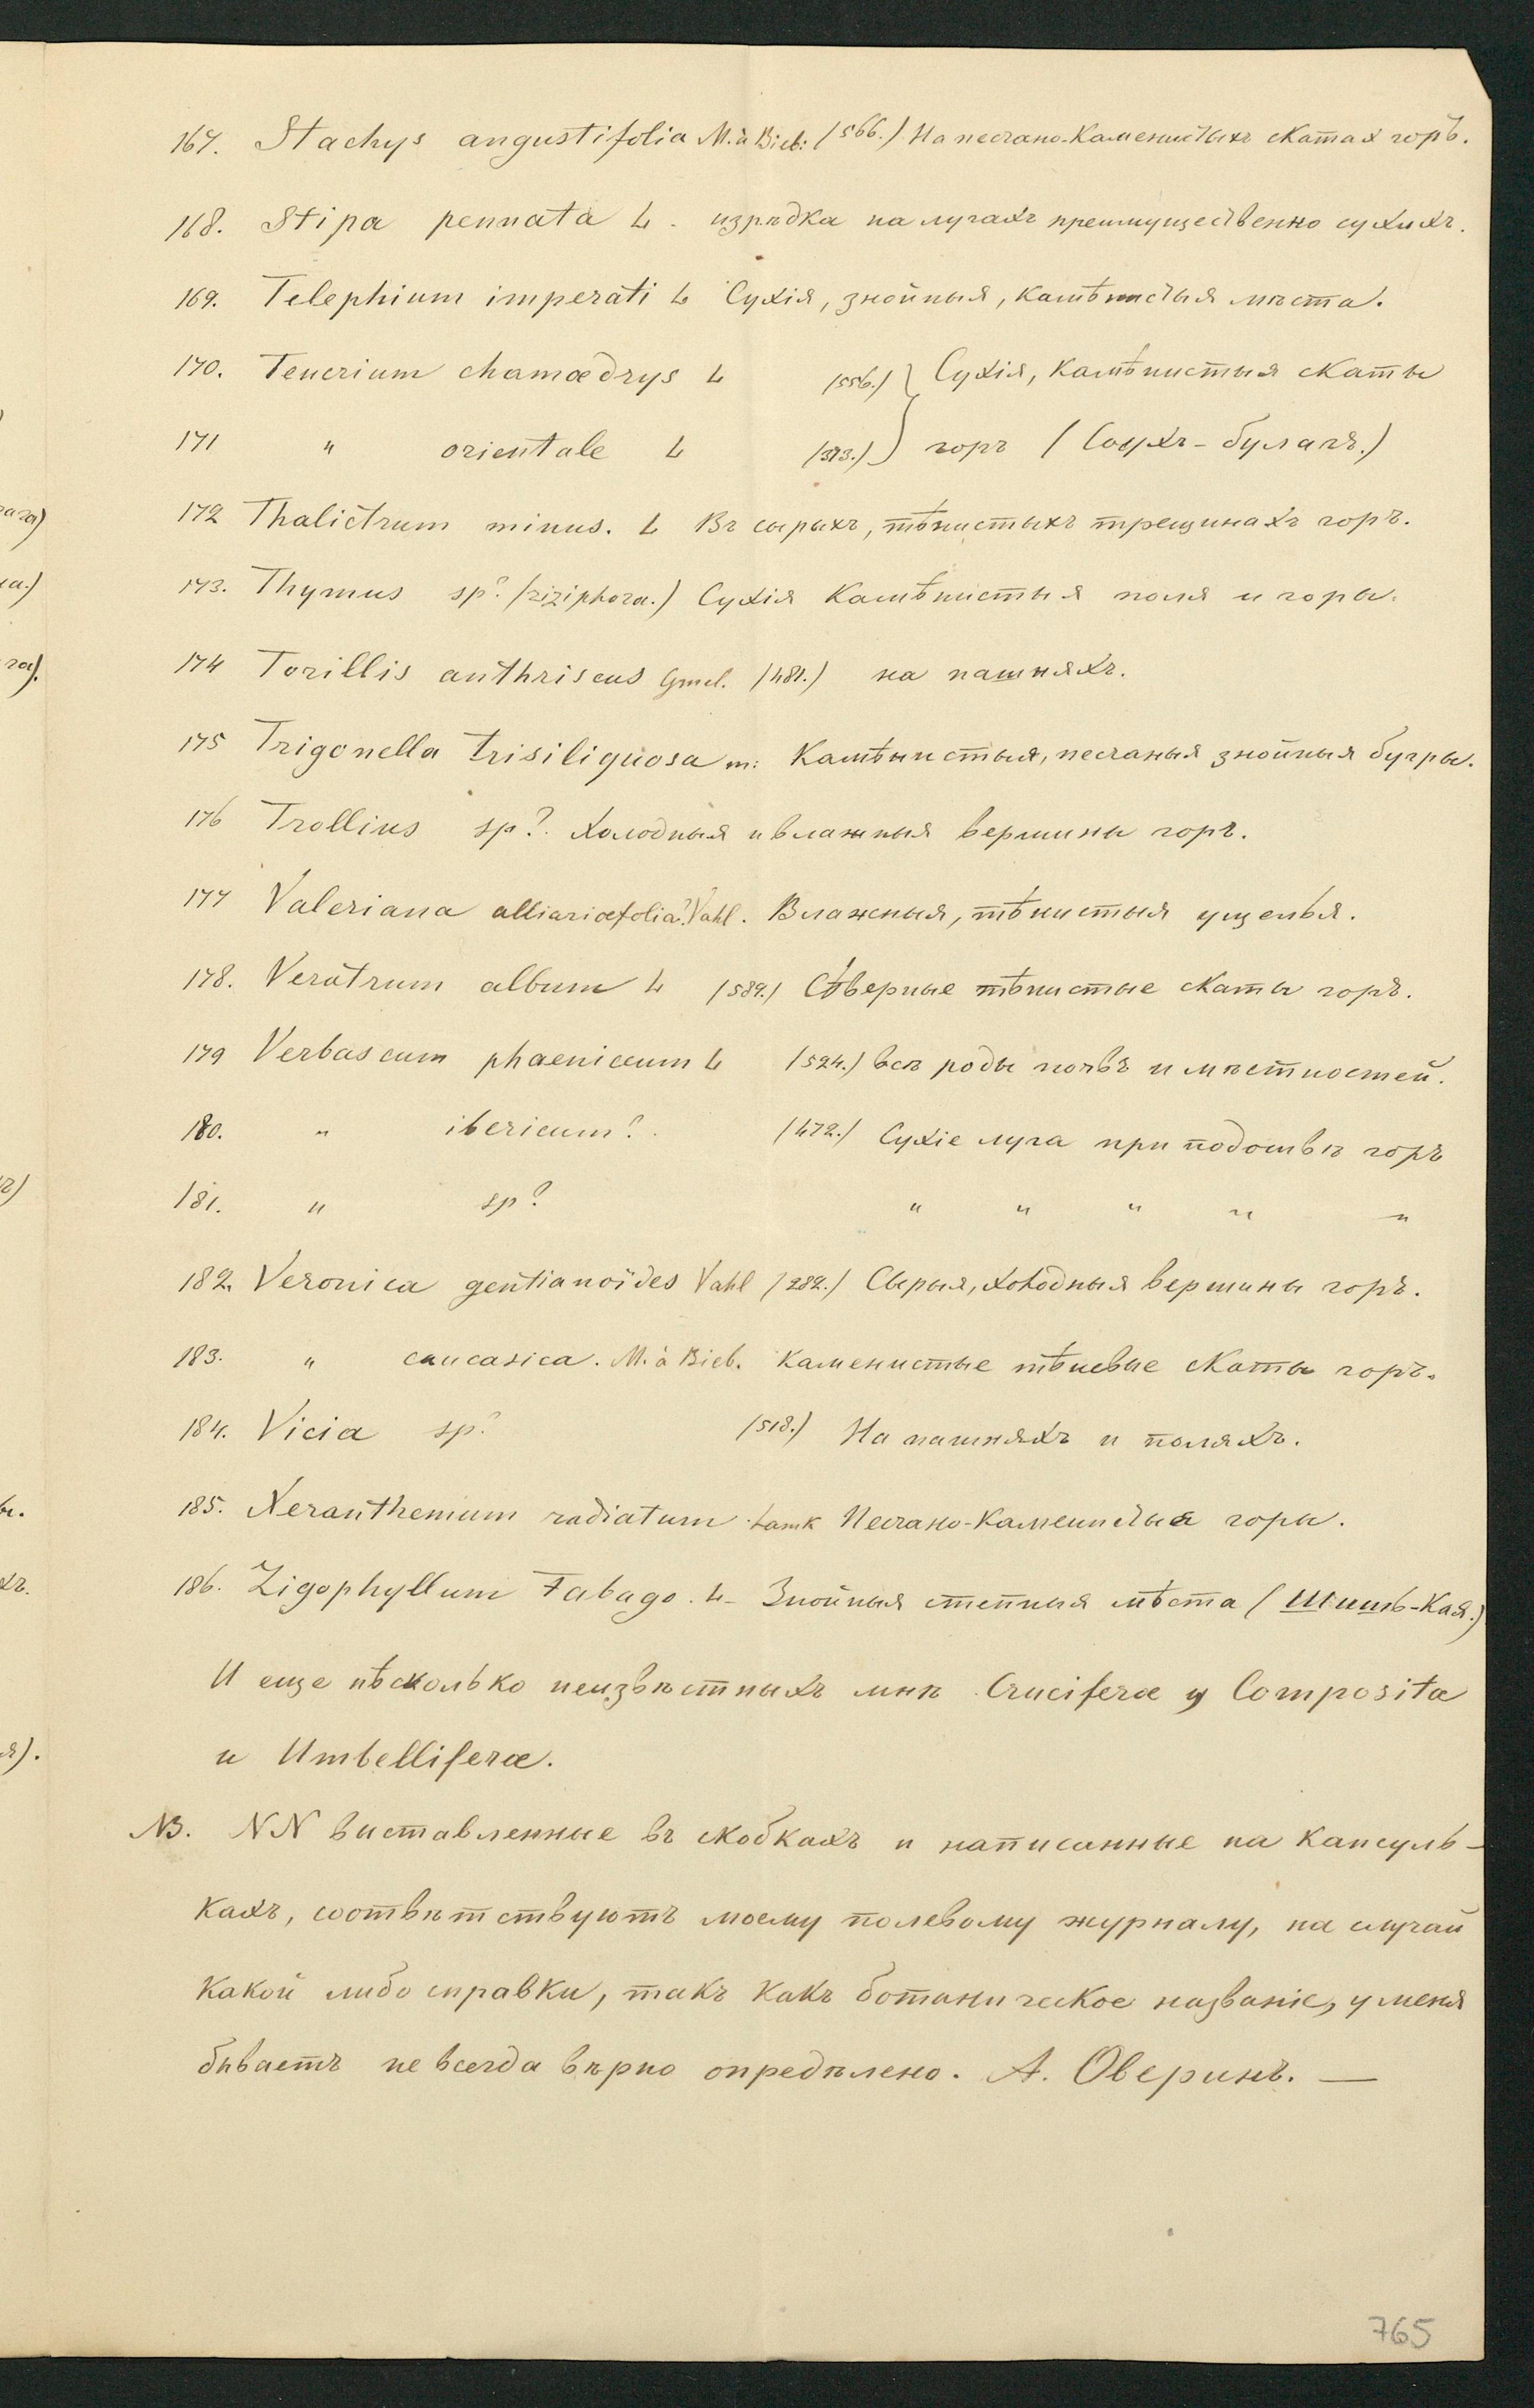 167. Stachys angustifolia M. à Bieb: (566.) На песчано-каменистыхъ скатах горъ.
168. Stipa pennata L. изрѣдка на лугахъ преимущественно сухихъ.
169. Telephium imperati L Сухія, знойныя, камѣнистыя мѣста.
170. Teucrium chamædrys L (556.) } Сухія, камѣнистыя скаты
171 " orientale L (373.) } горъ (Соухъ-булагъ.)
172 Thalictrum minus. L Въ сырыхъ, тѣнистыхъ трещинахъ горъ.
173. Thymus sp? (ziziphora.) Сухія камѣнистыя поля и горы.
174 Torillis anthriscus Gmel. (481.) на пашняхъ.
175 Trigonella trisiliquosa m: Камѣнистыя, песчаныя знойныя бугры.
176 Trollius sp? Холодныя и влажныя вершины горъ.
177 Valeriana alliariæfolia? Vahl. Влажныя, тѣнистыя ущелья.
178. Veratrum album L (589.) Сѣверные тѣнистые скаты горъ.
179 Verbascum phaeniceum L (524.) всѣ роды почвъ и мѣстностей.
180. " ibericum? (472.) Сухіе луга при подошвѣ горъ
181. " sp? " " " " "
182. Veronica gentianoïdes Vahl (282.) Сырыя, холодныя вершины горъ.
183. " caucasica. M. à Bieb. Каменистые тѣневые скаты горъ.
184. Vicia sp? (518.) На пашняхъ и поляхъ.
185. Xeranthemum radiatum Lamk Песчано-каменистыя горы.
186. Zigophyllum Fabago. L- Знойныя степныя мѣста (Шишь-Кая.)
И еще нѣсколько неизвѣстныхъ мнѣ Cruciferæ y Compositæ
и Umbelliferæ.
NB. NN выставленные въ скобкахъ и написанные на капсуль-
кахъ, соотвѣтствуютъ моему полевому журналу, на случай
какой либо справки, такъ какъ ботаническое названіе, у меня
бываетъ не всегда вѣрно опредѣлено. А. Оверинъ. —
765